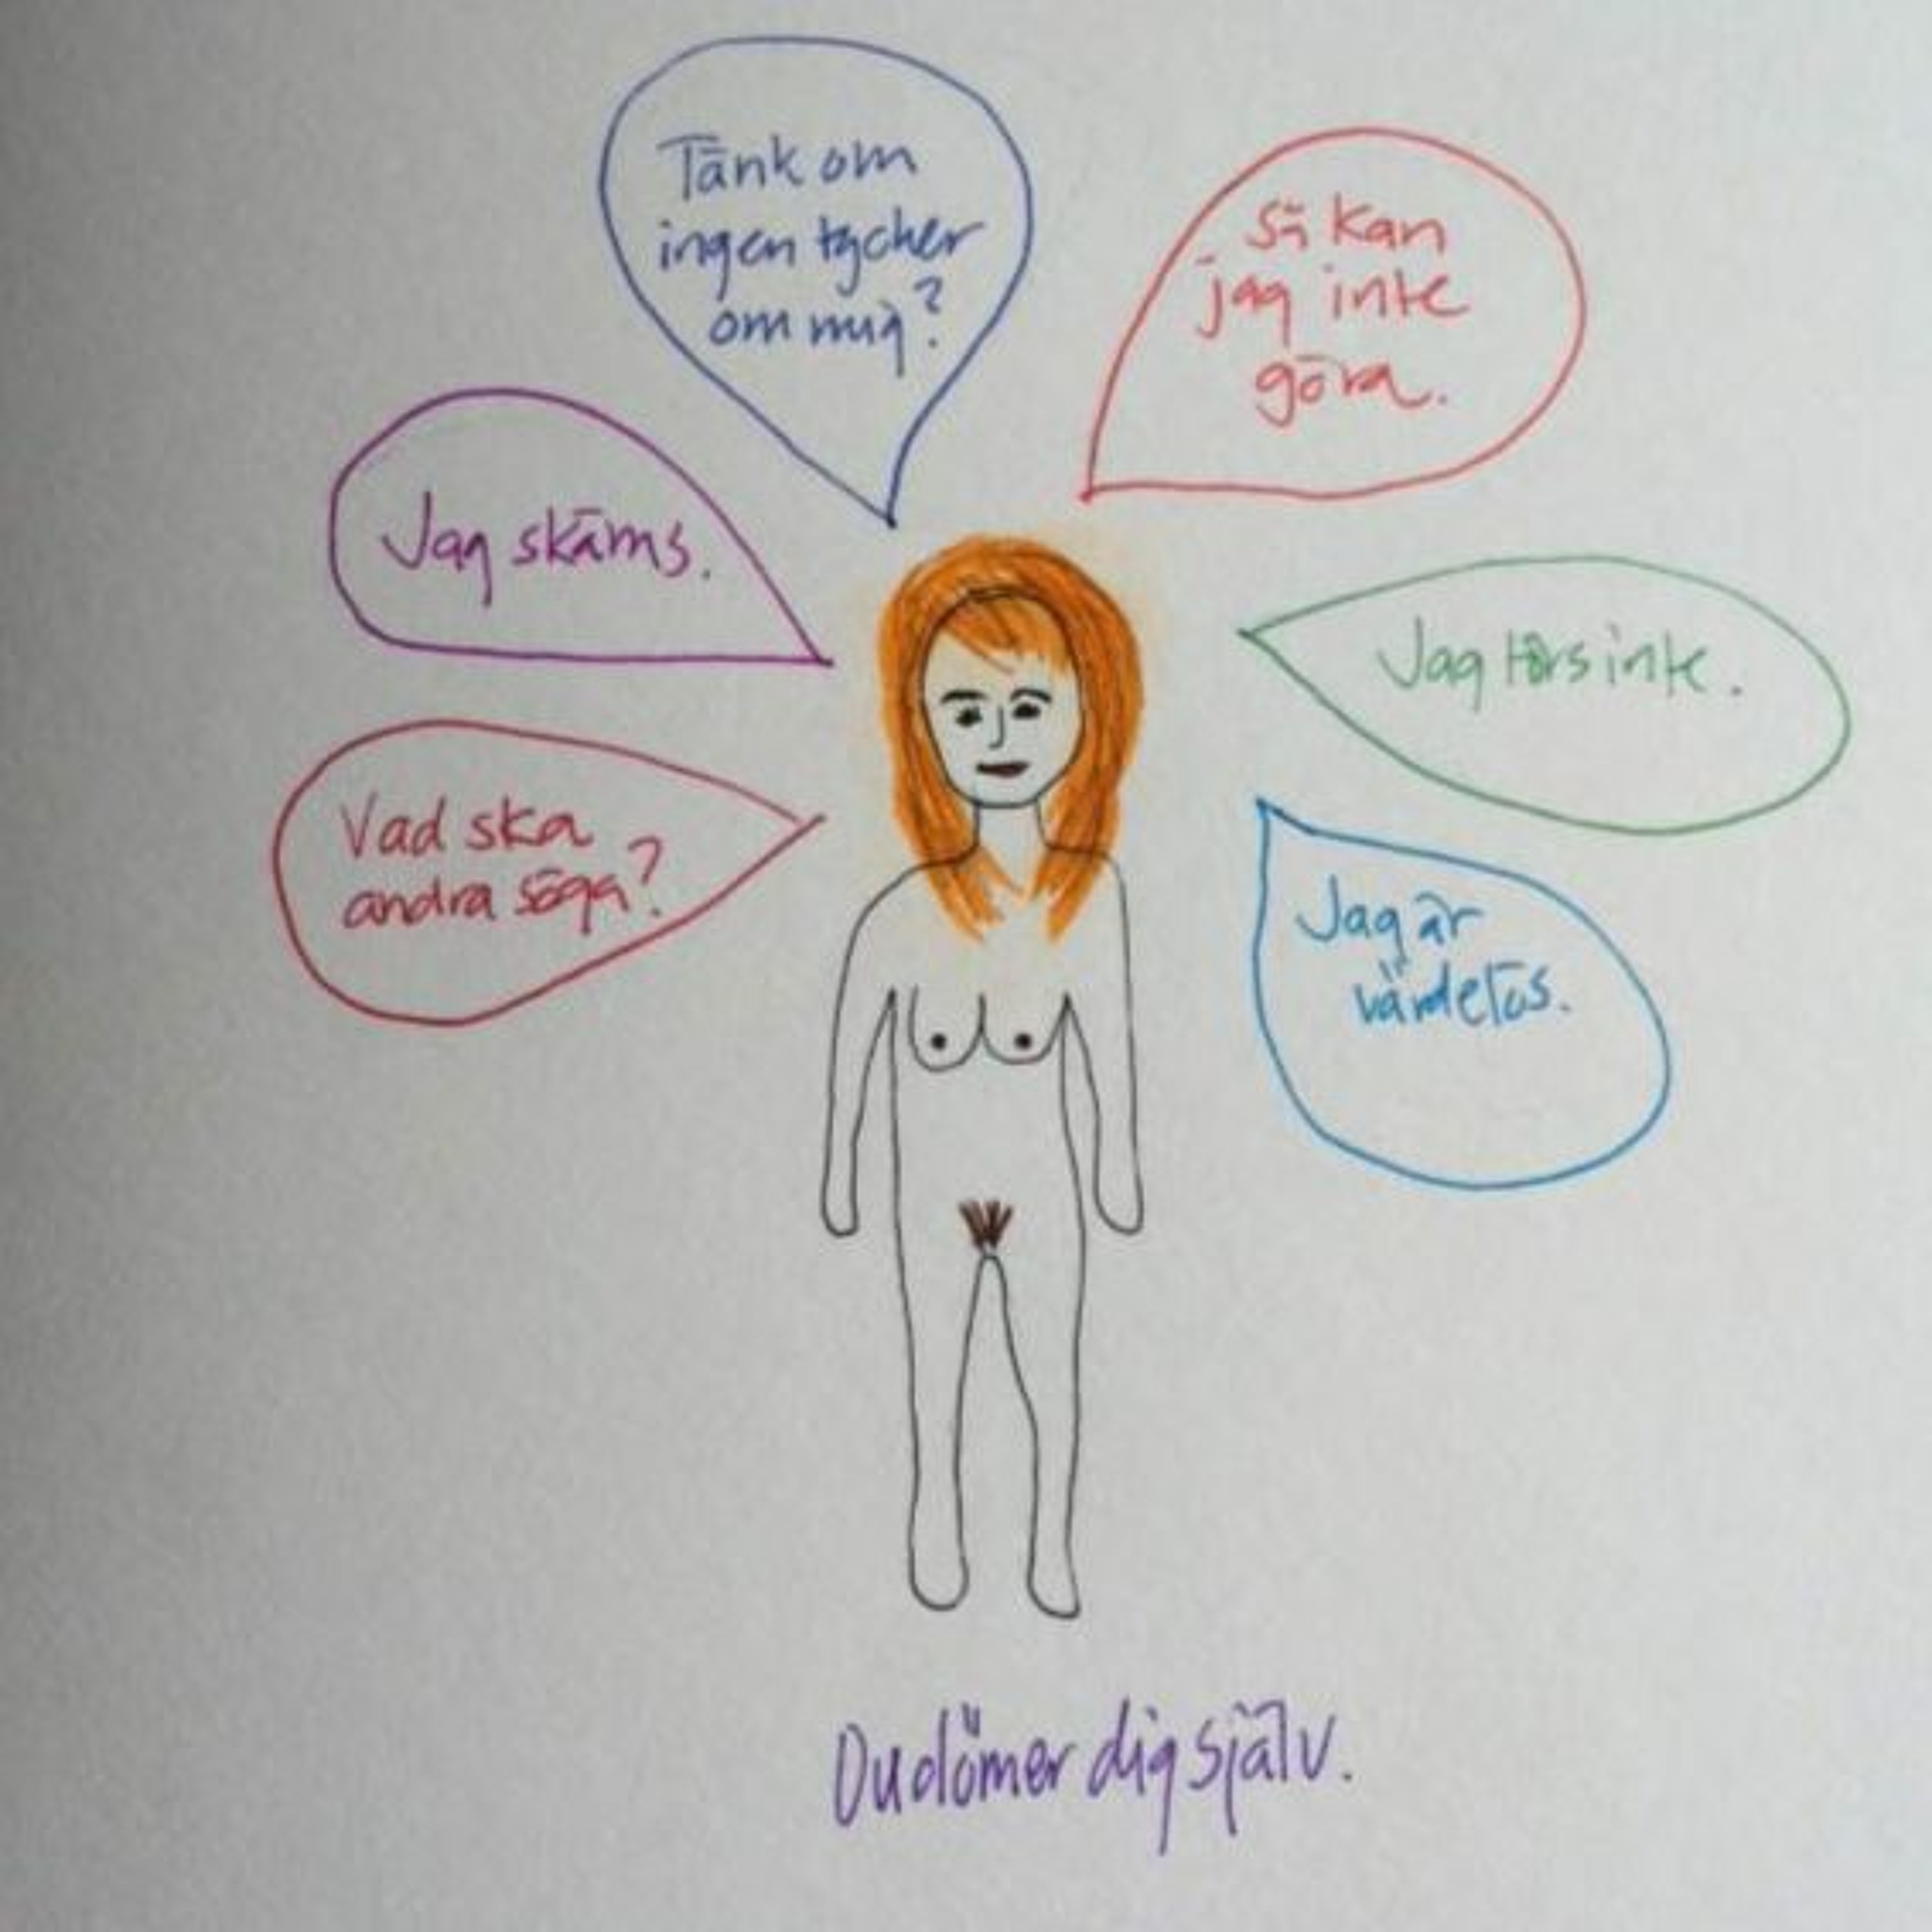 Tänk om
ingen tycker
om mig?
Så kan
jag inte
göra.
Jag skäms.
Jag törs inte.
Vad ska
andra säga?
Jag är
värdelös.
Du dömer dig själv.